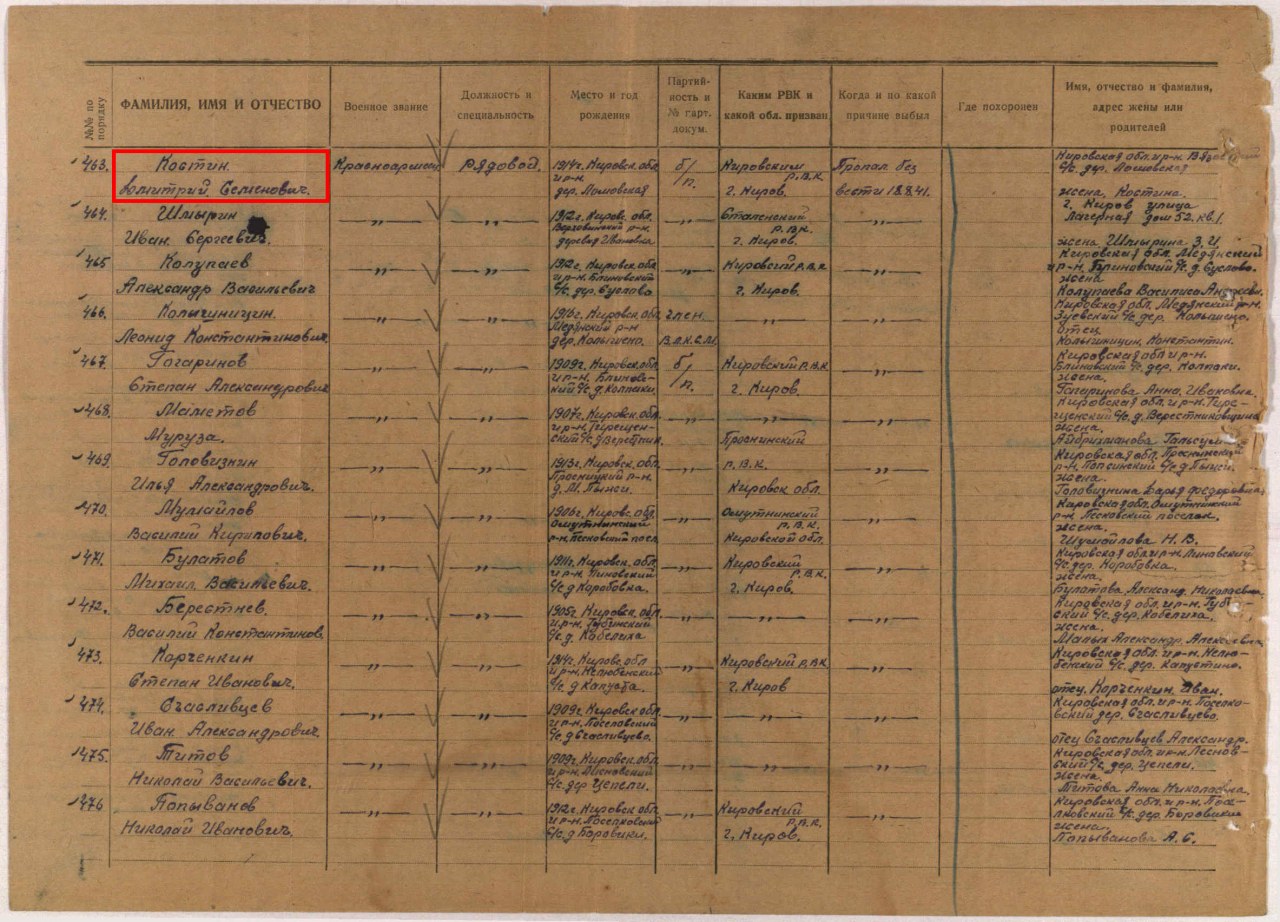 №№ по порядку
ФАМИЛИЯ, ИМЯ И ОТЧЕСТВО
Военное звание
Должность и специальность
Место и год рождения
Партийность и № парт. докум.
Каким РВК и какой обл. призван
Когда и по какой причине выбыл
Где похоронен
Имя, отчество и фамилия, адрес жены или родителей
463. Костин Красноармеец Рядовой. 1914г. Кировск. обл. б/п. Кировским Р.В.К. Пропал без Кировская обл. и р-н
Дмитрий Семенович. и р-н дер. Лошовская г. Киров. вести 18.8.41. с/с. дер. Лошовская
жена Костина
464. Шмырин —„— —„— 1912г. Киров. обл. —„— Сталинский Р.В.К. —„— г. Киров улица
Иван Сергеевич. деревня Ивановка г. Киров. Лагерная дом 52. кв 1.
жена Шмырина З. И.
465 Колупаев —„— —„— 1912г. Кировск. обл —„— Кировский Р.В.К —„— Кировская обл. Медянский
Александр Васильевич и р-н. Блиновский с/с д. Суслово г. Киров. р-н. Блиновский с/с. д. Суслово
жена
Колупаева Василиса
466. —„— —„— 1916г. Кировск. обл. член. —„— —„— Кировская обл. Медянский р-н
Леонид Константинович Медянский р-н дер. Колышено. В.Л.К.С.М Зуевский с/с дер. Колышено.
отец
Константин.
467. Гогаринов —„— —„— 1909г. Кировск. обл б/п. Кировский Р.В.К —„— Кировская обл и р-н.
Степан Александрович и р-н. с/с. д. Колпаки г. Киров. с/с. дер. Колпаки.
жена.
Анна Ивановна.
468. Маметов —„— —„— 1907г. Кировск. обл. —„— —„— —„— Кировская обл. и р-н.
Муруза. и р-н. с/с д Просницкий с/с д.
жена.
469 Головизнин —„— —„— 1913г. Кировск. обл. —„— Р.В.К. —„— Кировская обл. Просницкий
Илья Александрович. Просницкий р-н д. М. Пыжи. Кировск обл. р-н. с/с д Пыжи.
жена.
Головизнина Дарья Федоровна
470. —„— —„— 1906г. Кировс. обл —„— Омутнинский Р.В.К. —„— Кировская обл. Омутнинский
Василий Омутнинский р-н Песковский посел Кировской обл. р-н. Песковский поселок.
жена.
Н. В.
471. Булатов —„— —„— 1911г. Кировск. обл. —„— Кировский Р.В.К. —„— Кировская обл и р-н.
Михаил Васильевич. и р-н с/с д Коробовка. г. Киров. с/с. дер. Коробовка.
жена.
Булатова Александ. Николаевна
472. Берестнев. —„— —„— 1905г. Кировск. обл. —„— —„— —„— Кировская обл. и р-н. Губинский
Василий Константинов. и р-н. Губинский с/с. д. Кобелиха с/с. дер. Кобелиха.
жена.
Малых Александр. Алексеевна
473. Корченкин —„— —„— 1914г. Киров. обл —„— Кировский Р.В.К —„— Кировская обл. и р-н.
Степан Иванович. и р-н. с/с. д Капуста. г. Киров с/с. дер. Капустино.
отец. Корченкин Иван.
474. Счасливцев —„— —„— 1909г. Кировск. обл —„— —„— —„— Кировская обл. и р-н.
Иван Александрович. и р-н. с/с. д Счасливцево. дер. Счасливцево.
отец Счасливцев Александр.
475. Титов —„— —„— 1909г. Кировск. обл —„— —„— —„— Кировская обл. и р-н.
Николай Васильевич. и р-н. с/с. дер Цепели. с/с. дер. Цепели.
жена.
Титова Анна Николаевна
476 Попыванов —„— —„— 1912г. Кировск обл —„— Кировский Р.В.К. —„— Кировская обл. и р-н.
Николай Иванович. и р-н. с/с. д Боровики. г. Киров. с/с. дер. Боровики
жена.
Попыванова А. С.